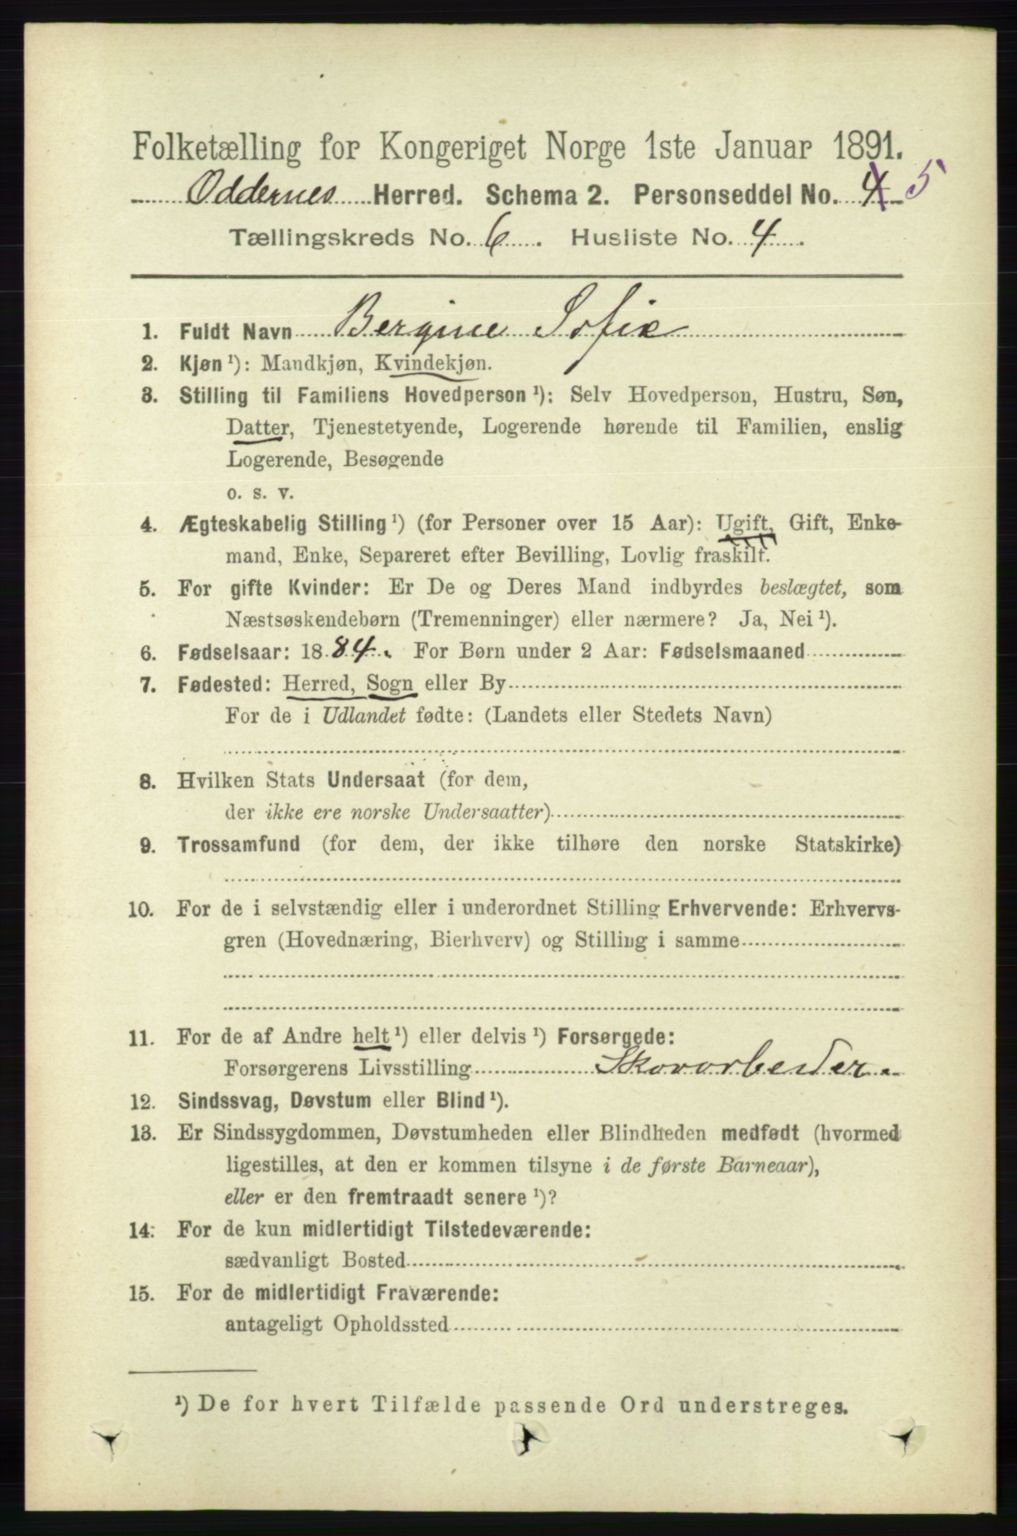 Folketælling for Kongeriget Norge 1ste Januar 1891.
Oddernes Herred. Schema 2. Personseddel No. 4 5
Tællingskreds No. 6. Husliste No. 4.
1. Fuldt Navn Bergine Sofie
2. Kjøn ¹): Mandkjøn, Kvindekjøn.
3. Stilling til Familiens Hovedperson ¹): Selv Hovedperson, Hustru, Søn,
Datter, Tjenestetyende, Logerende hørende til Familien, enslig
Logerende, Besøgende
o. s. v.
4. Ægteskabelig Stilling ¹) (for Personer over 15 Aar): Ugift, Gift, Enke-
mand, Enke, Separeret efter Bevilling, Lovlig fraskilt.
5. For gifte Kvinder: Er De og Deres Mand indbyrdes beslægtet, som
Næstsøskendebørn (Tremenninger) eller nærmere? Ja, Nei ¹).
6. Fødselsaar: 1884. For Børn under 2 Aar: Fødselsmaaned
7. Fødested: Herred, Sogn eller By
For de i Udlandet fødte: (Landets eller Stedets Navn)
8. Hvilken Stats Undersaat (for dem,
der ikke ere norske Undersaatter)
9. Trossamfund (for dem, der ikke tilhøre den norske Statskirke)
10. For de i selvstændig eller i underordnet Stilling Erhvervende: Erhvervs-
gren (Hovednæring, Bierhverv) og Stilling i samme
11. For de af Andre helt ¹) eller delvis ¹) Forsørgede:
Forsørgerens Livsstilling Skovarbeider.
12. Sindssvag, Døvstum eller Blind ¹).
13. Er Sindssygdommen, Døvstumheden eller Blindheden medfødt (hvormed
ligestilles, at den er kommen tilsyne i de første Barneaar),
eller er den fremtraadt senere ¹)?
14. For de kun midlertidigt Tilstedeværende:
sædvanligt Bosted
15. For de midlertidigt Fraværende:
antageligt Opholdssted
¹) De for hvert Tilfælde passende Ord understreges.